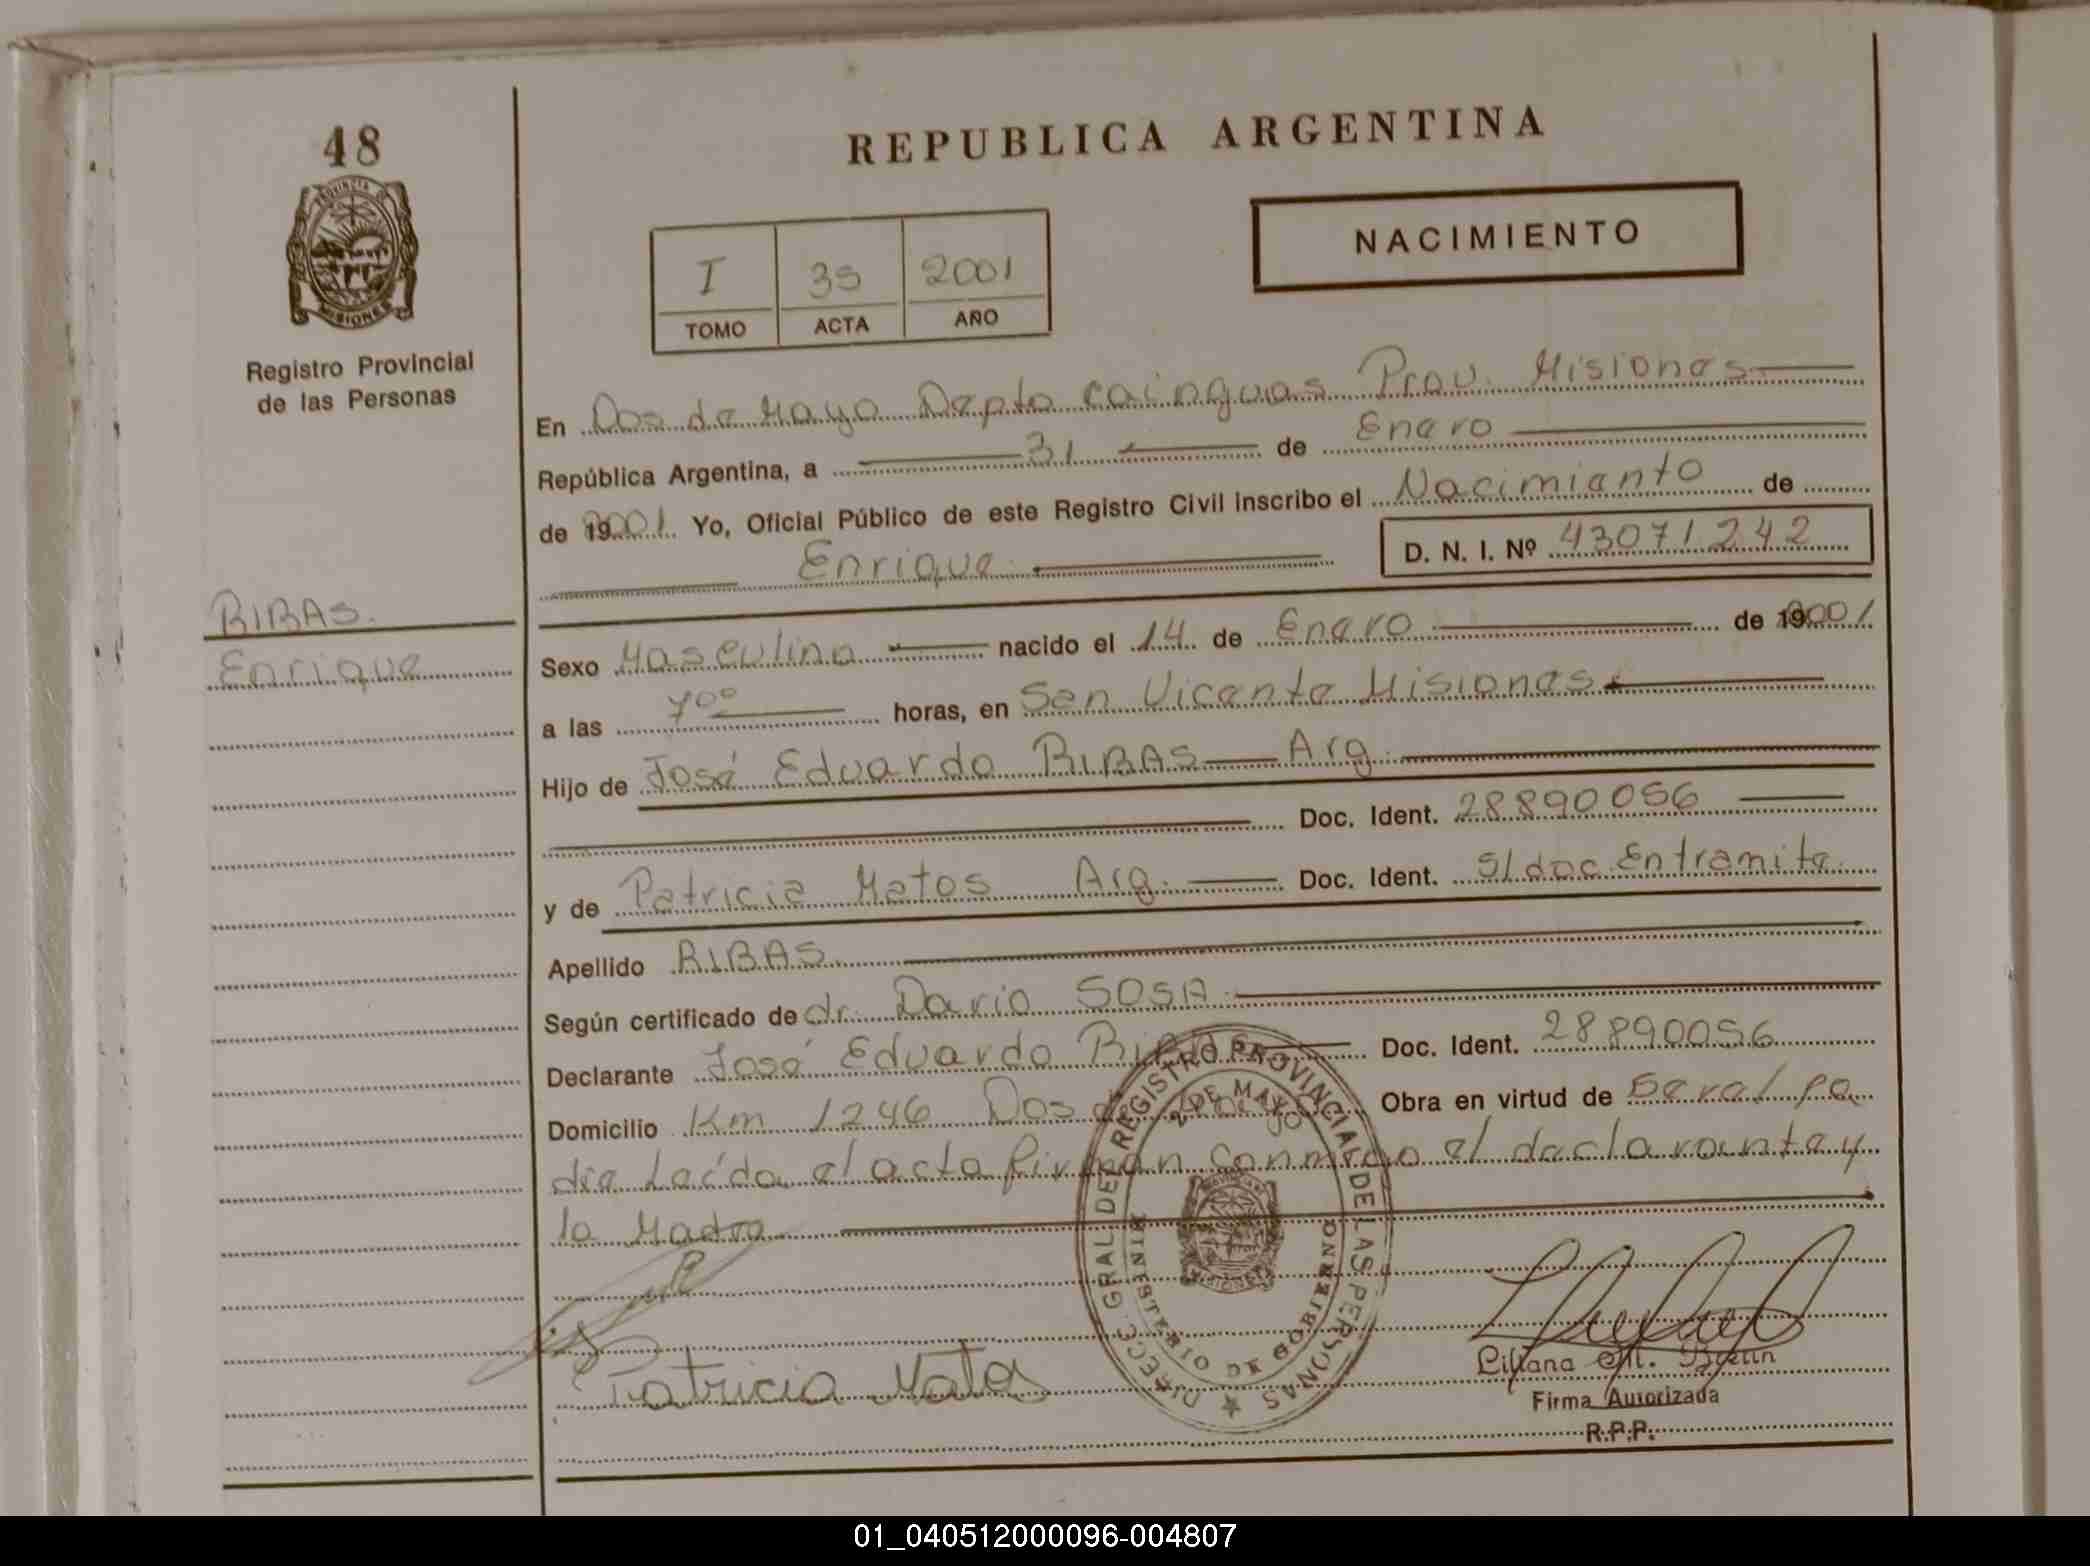 48
REPUBLICA ARGENTINA
NACIMIENTO
I 35 2001
TOMO ACTA AÑO
PROVINCIA
MISIONES
Registro Provincial
de las Personas
En Dos de Mayo Depto Cainguas Prov. Misiones
República Argentina, a 31 de Enero
de 192001 Yo, Oficial Público de este Registro Civil inscribo el Nacimiento de
Enrique D. N. I. Nº 43071242
RIBAS.
Enrique
Sexo Masculino nacido el 14 de Enero de 192001
a las 7ºº horas, en San Vicente Misiones
Hijo de José Eduardo RIBAS Arg.
Doc. Ident. 28890056
y de Patricia Matos Arg. Doc. Ident. S/doc. Entramite.
Apellido RIBAS
Según certificado de dr. Dario SOSA
Declarante José Eduardo Ribas Doc. Ident. 28890056
Domicilio Km 1246 Dos de Mayo Obra en virtud de Ser el pa
dre Leída el acta firman conmigo el declarante y
la Madre
DIRECC. GRAL DEL REGISTRO PROVINCIAL DE LAS PERSONAS
2 DE MAYO
MINISTERIO DE GOBIERNO
PROVINCIA
MISIONES
Patricia Matos
Liliana M.
Firma Autorizada
R.P.P.
01_040512000096-004807